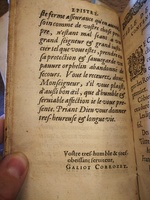 EPISTRE.
de ferme asseurance quën ayant
soin comme de vostre chose pro-
pre, n'estant mal seant à un
grand seigneur & grand
tel que vous estes, prendre
sa protection & sauuegarde un
pauure orphelin abandonné
secours. Vous le receurez, donc,
Monseigneur, s'il vous plaist
d'aussi bon œil, que d'humble &
seruiable affection ie le vous pre-
sente. Priant Dieu vous donner
tres-heureuse & longue vie.
Vostre tres-humble & tres-
obeissant seruiteur,
GALIOT CORROZET.